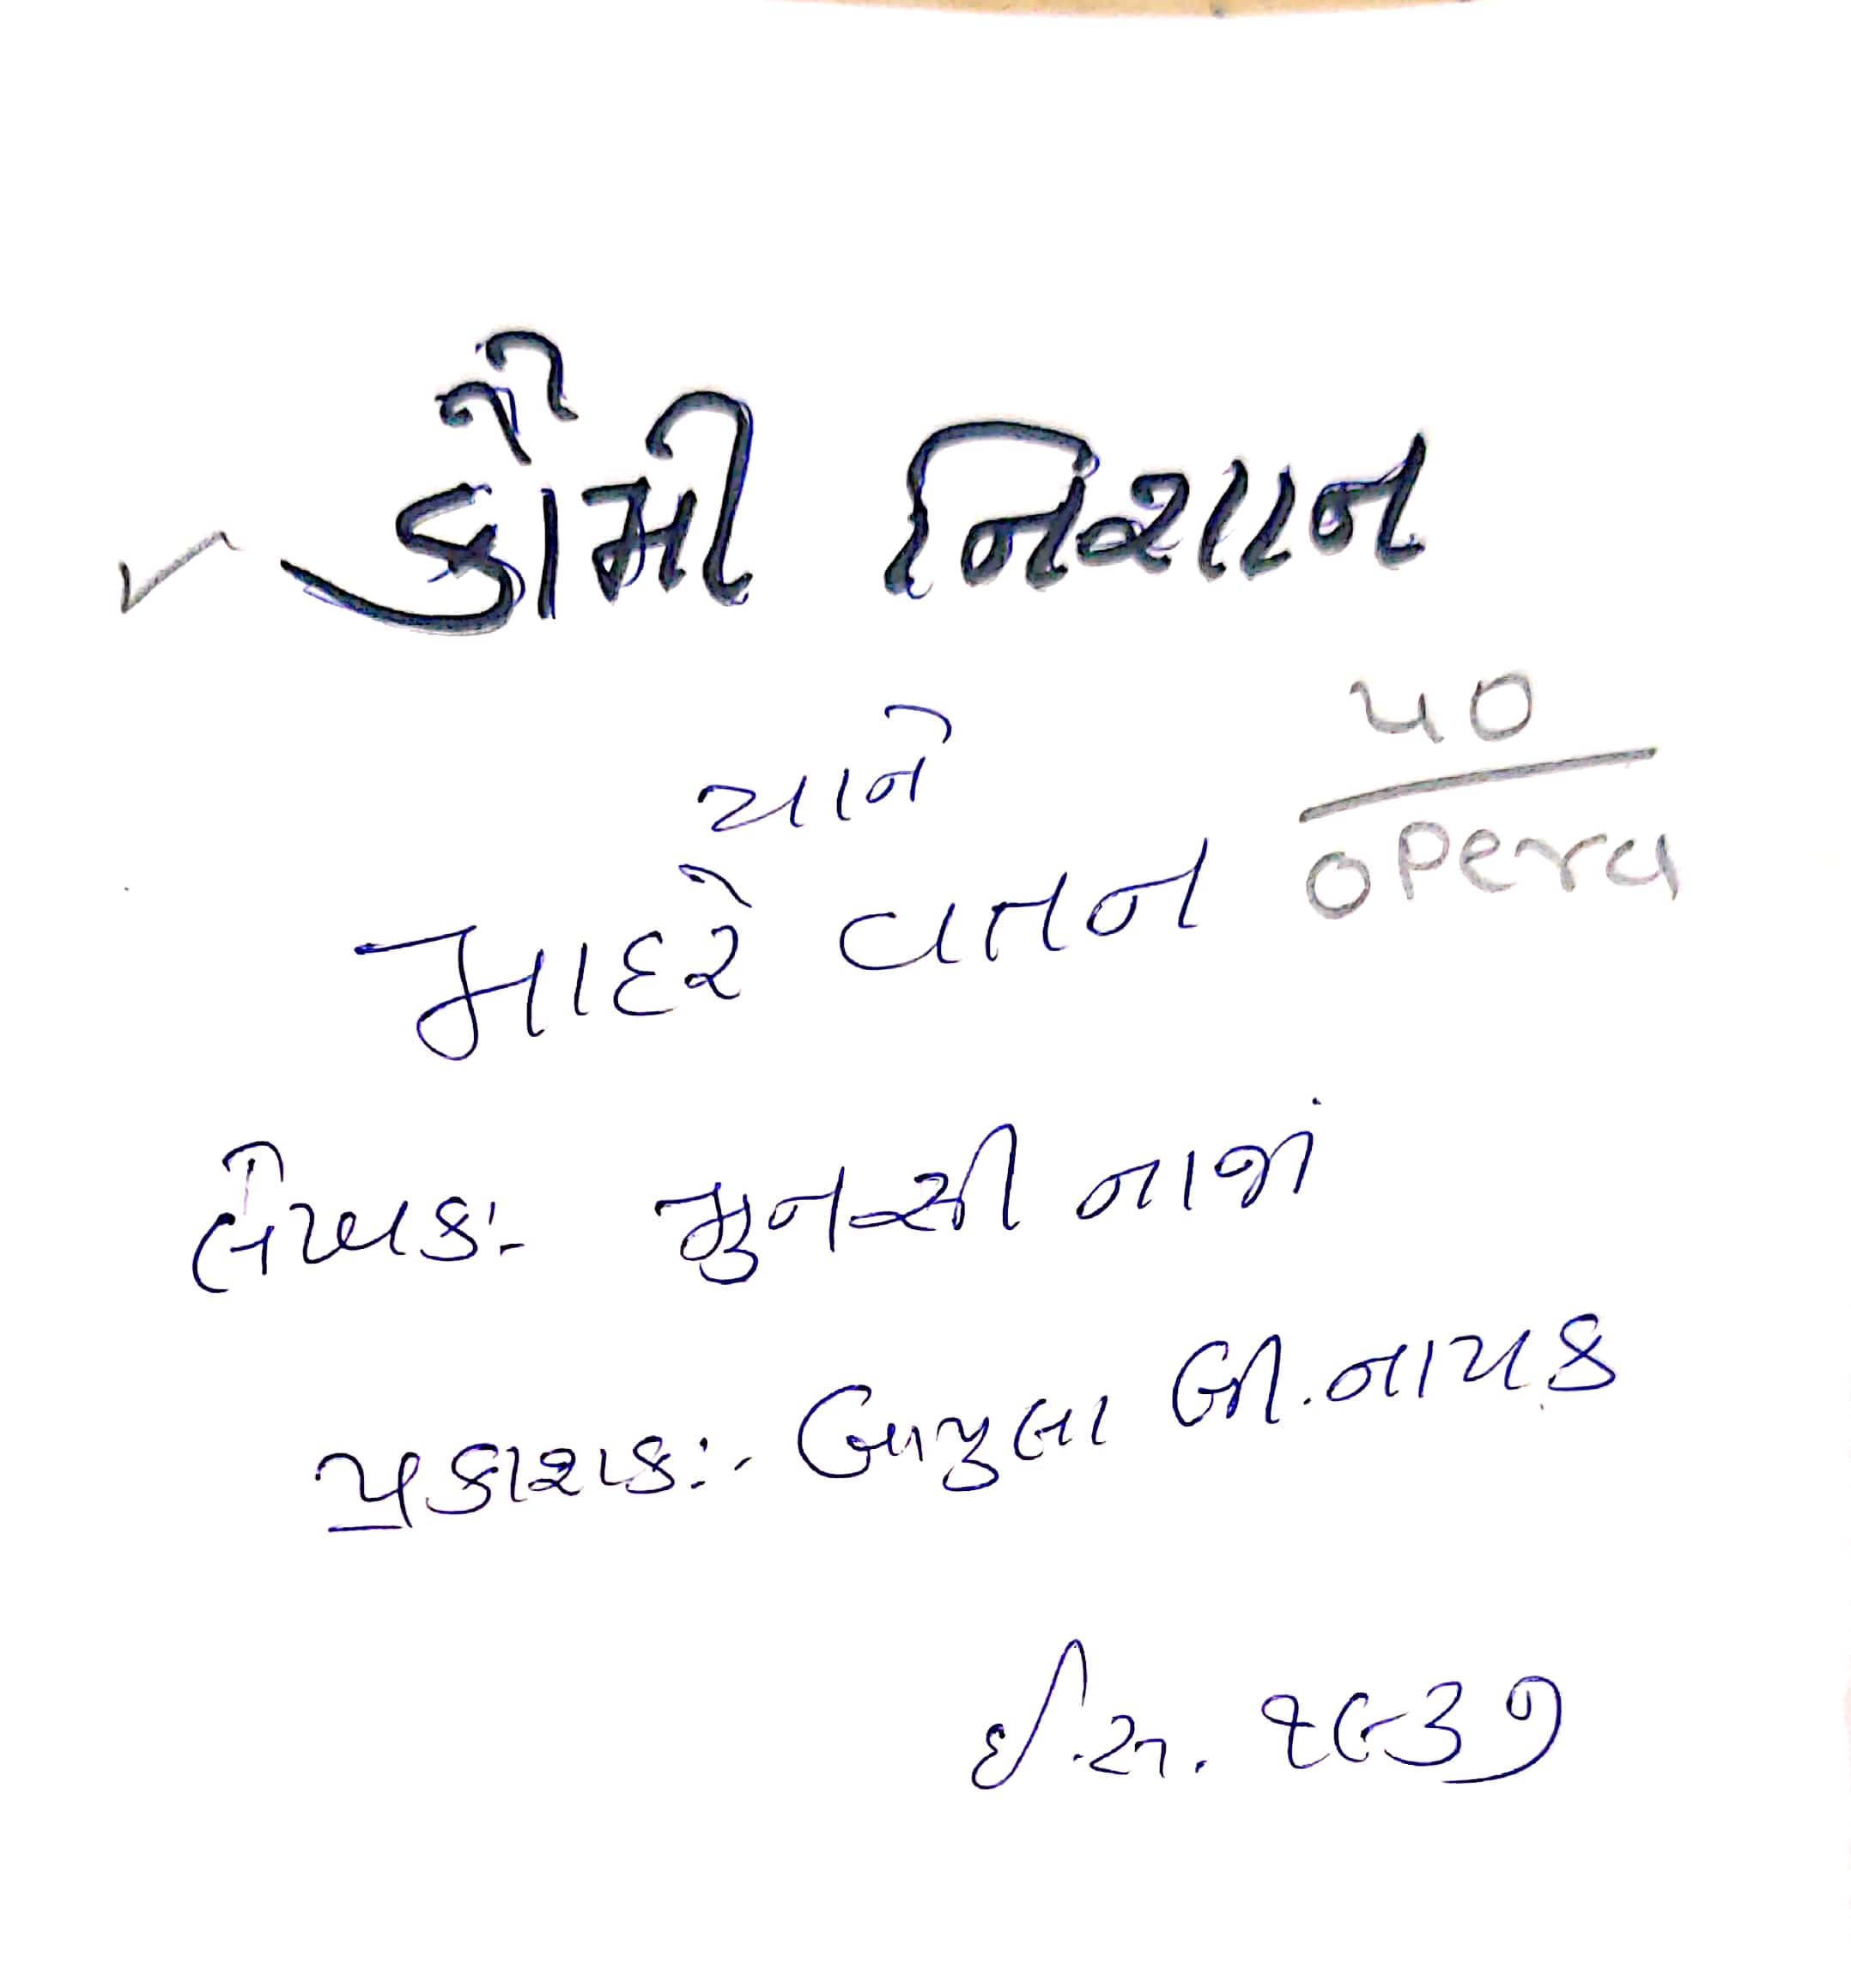 કૌમી નિશાન
યાને
૫૦
માદરે વતન
opera
લેખકઃ- મુનશી નાજાં
પ્રકાશકઃ- બાબુલા બી. નાયક
ઈ.સ. ૧૯૩૭